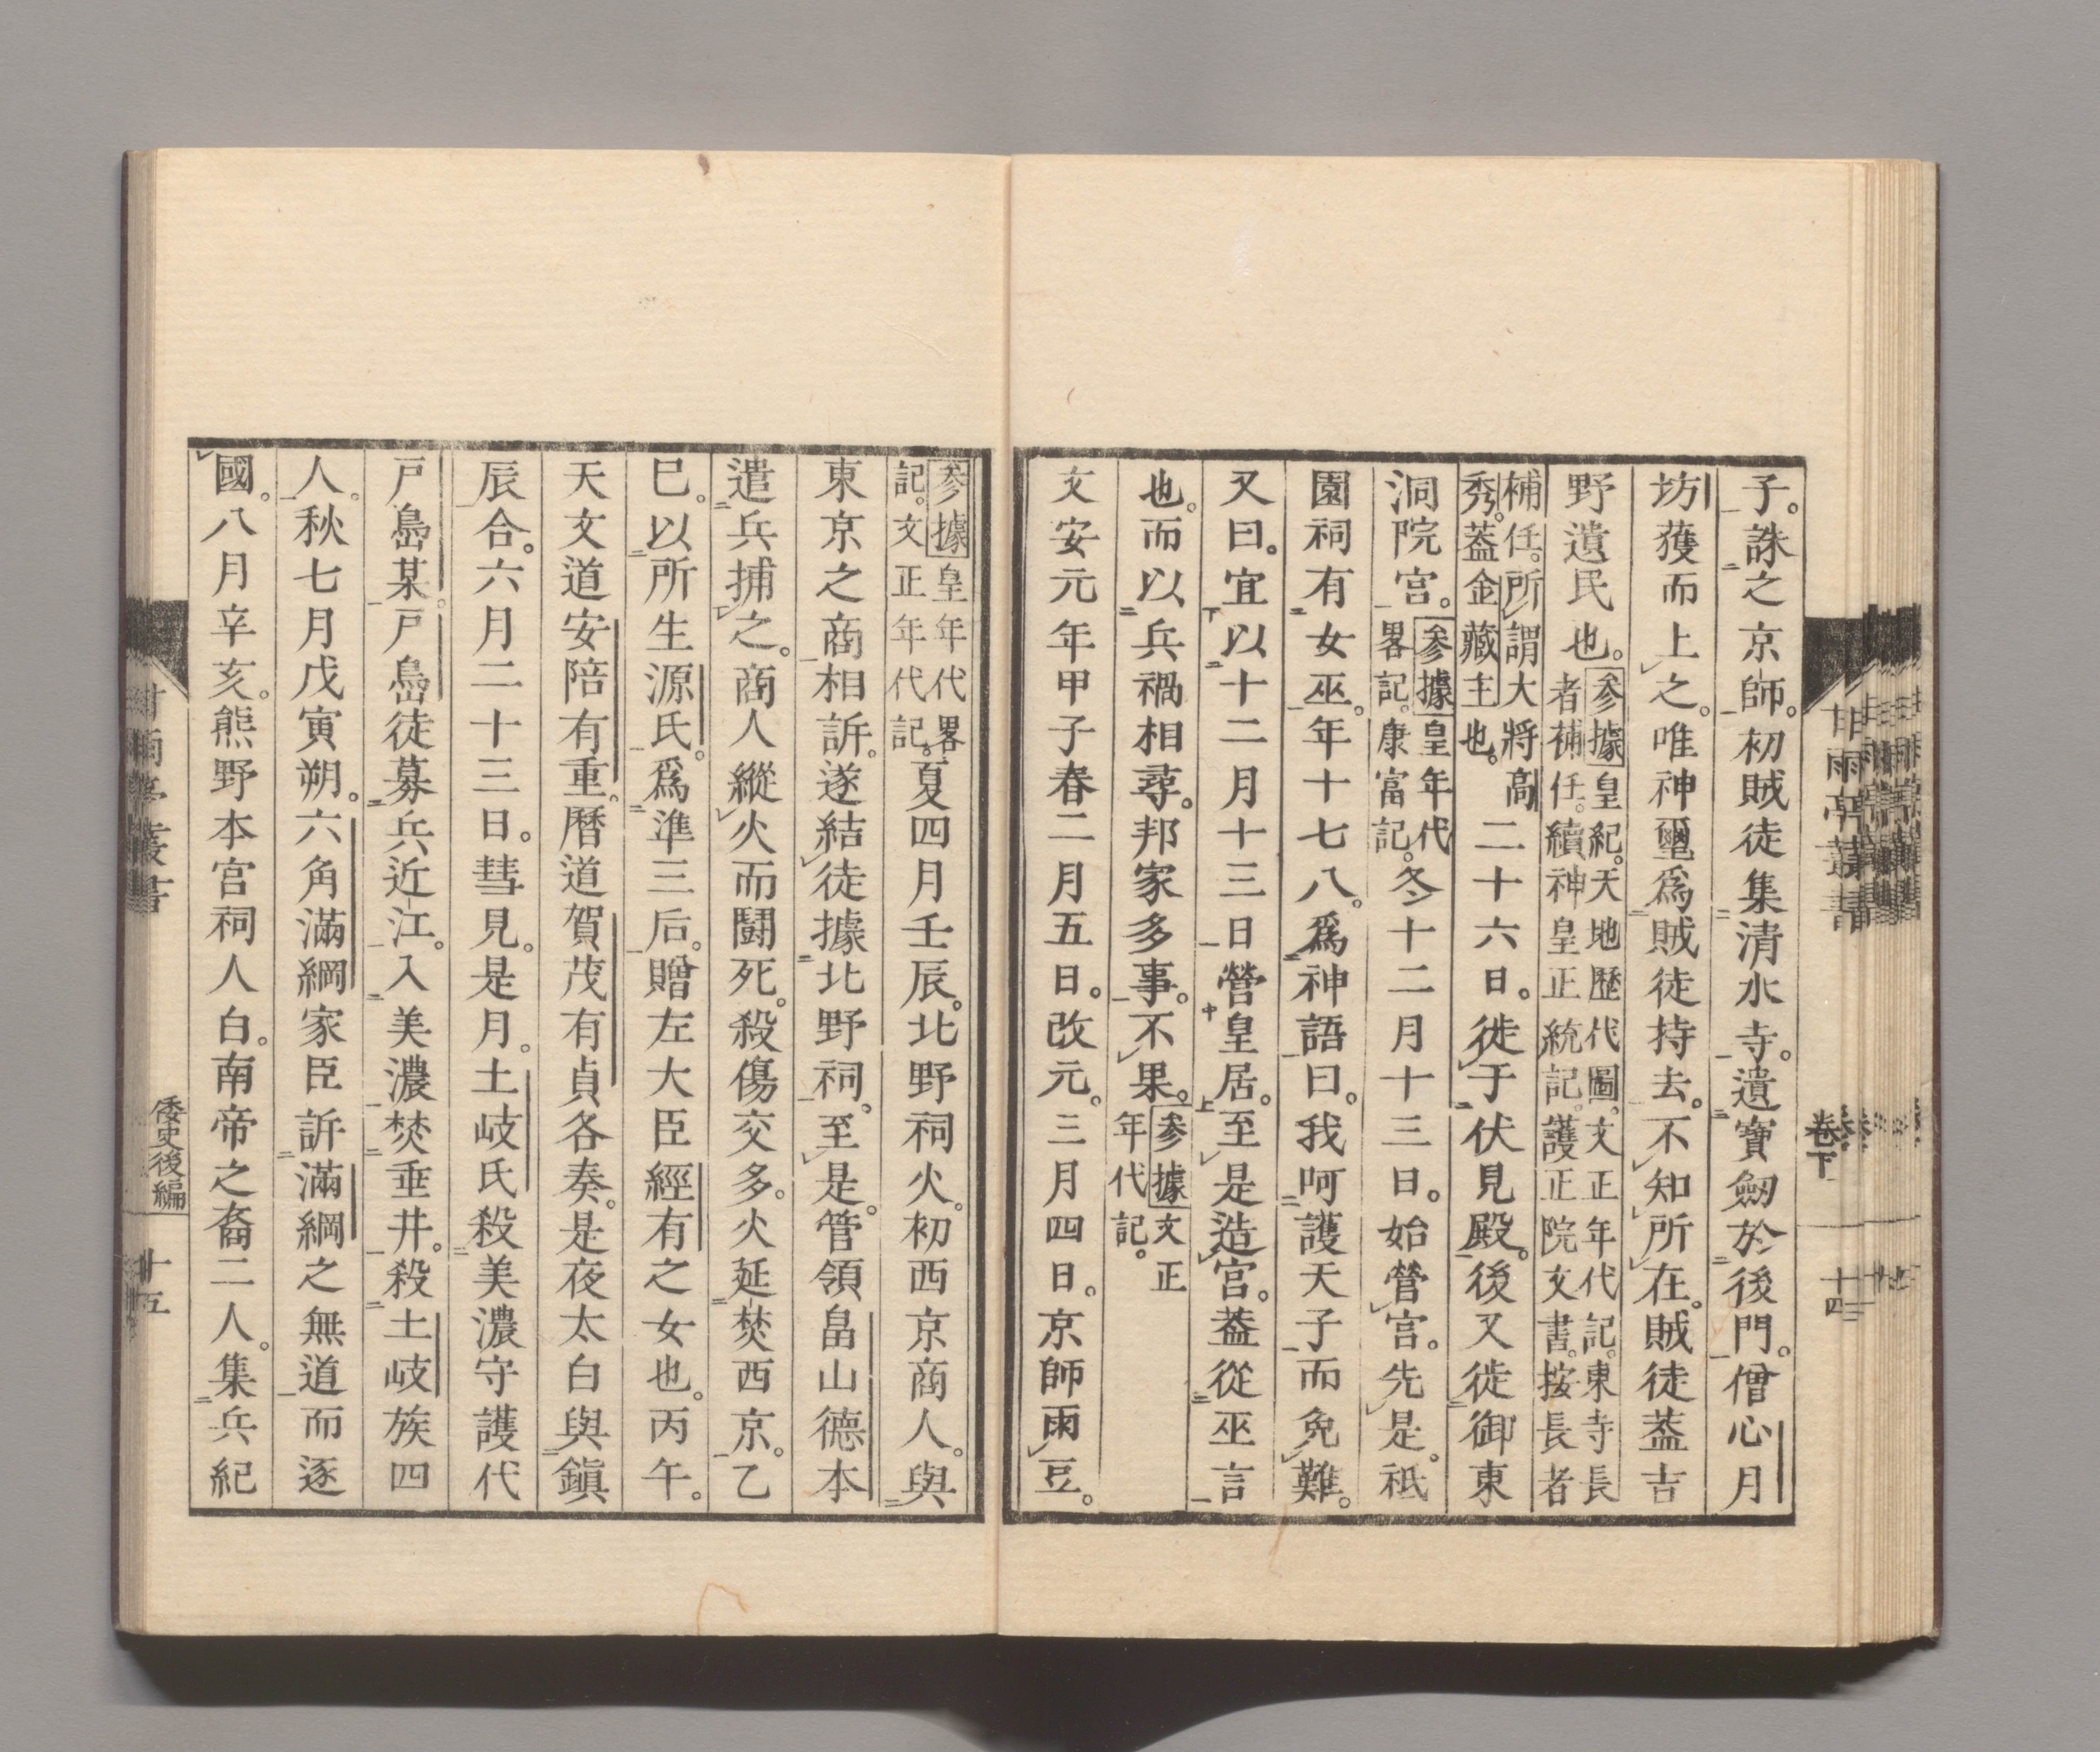 子。誅之京師。初賊徒集清水寺。遺寶劒於後門。僧心月
坊獲而上之。唯神璽爲賊徒持去。不知所在。賊徒蓋吉
野遺民也。參據皇紀。天地歷代圖。文正年代記。東寺長
者補任。續神皇正統記。護正院文書。按長者
補任。所謂大將高
秀。蓋金藏主也。二十六日。徙于伏見殿。後又徙御東
洞院宮。參據皇年代
畧記。康富記。冬十二月十三日。始營宮。先是。祇
園祠有女巫。年十七八。爲神語曰。我呵護天子而免難。
又曰。宜以十二月十三日營皇居。至是造宮。蓋從巫言
也。而以兵禍相尋。邦家多事。不果。參據文正
年代記。
文安元年甲子春二月五日。改元。三月四日。京師雨豆。
參據皇年代畧
記。文正年代記。夏四月壬辰。北野祠火。初西京商人。與
東京之商相訴。遂結徒據北野祠。至是。管領畠山德本
遣兵捕之。商人縱火而鬪死。殺傷交多。火延焚西京。乙
巳。以所生源氏。爲準三后。贈左大臣經有之女也。丙午。
天文道安陪有重。曆道賀茂有貞各奏。是夜太白與鎭
辰合。六月二十三日。彗見。是月。土岐氏殺美濃守護代
戸島某。戸島徒募兵近江。入美濃焚垂井。殺土岐族四
人。秋七月戊寅朔。六角滿綱家臣訴滿綱之無道而逐
國。八月辛亥。熊野本宮祠人白。南帝之裔二人。集兵紀
甘雨亭叢書
卷下
十四
倭史後編
十五